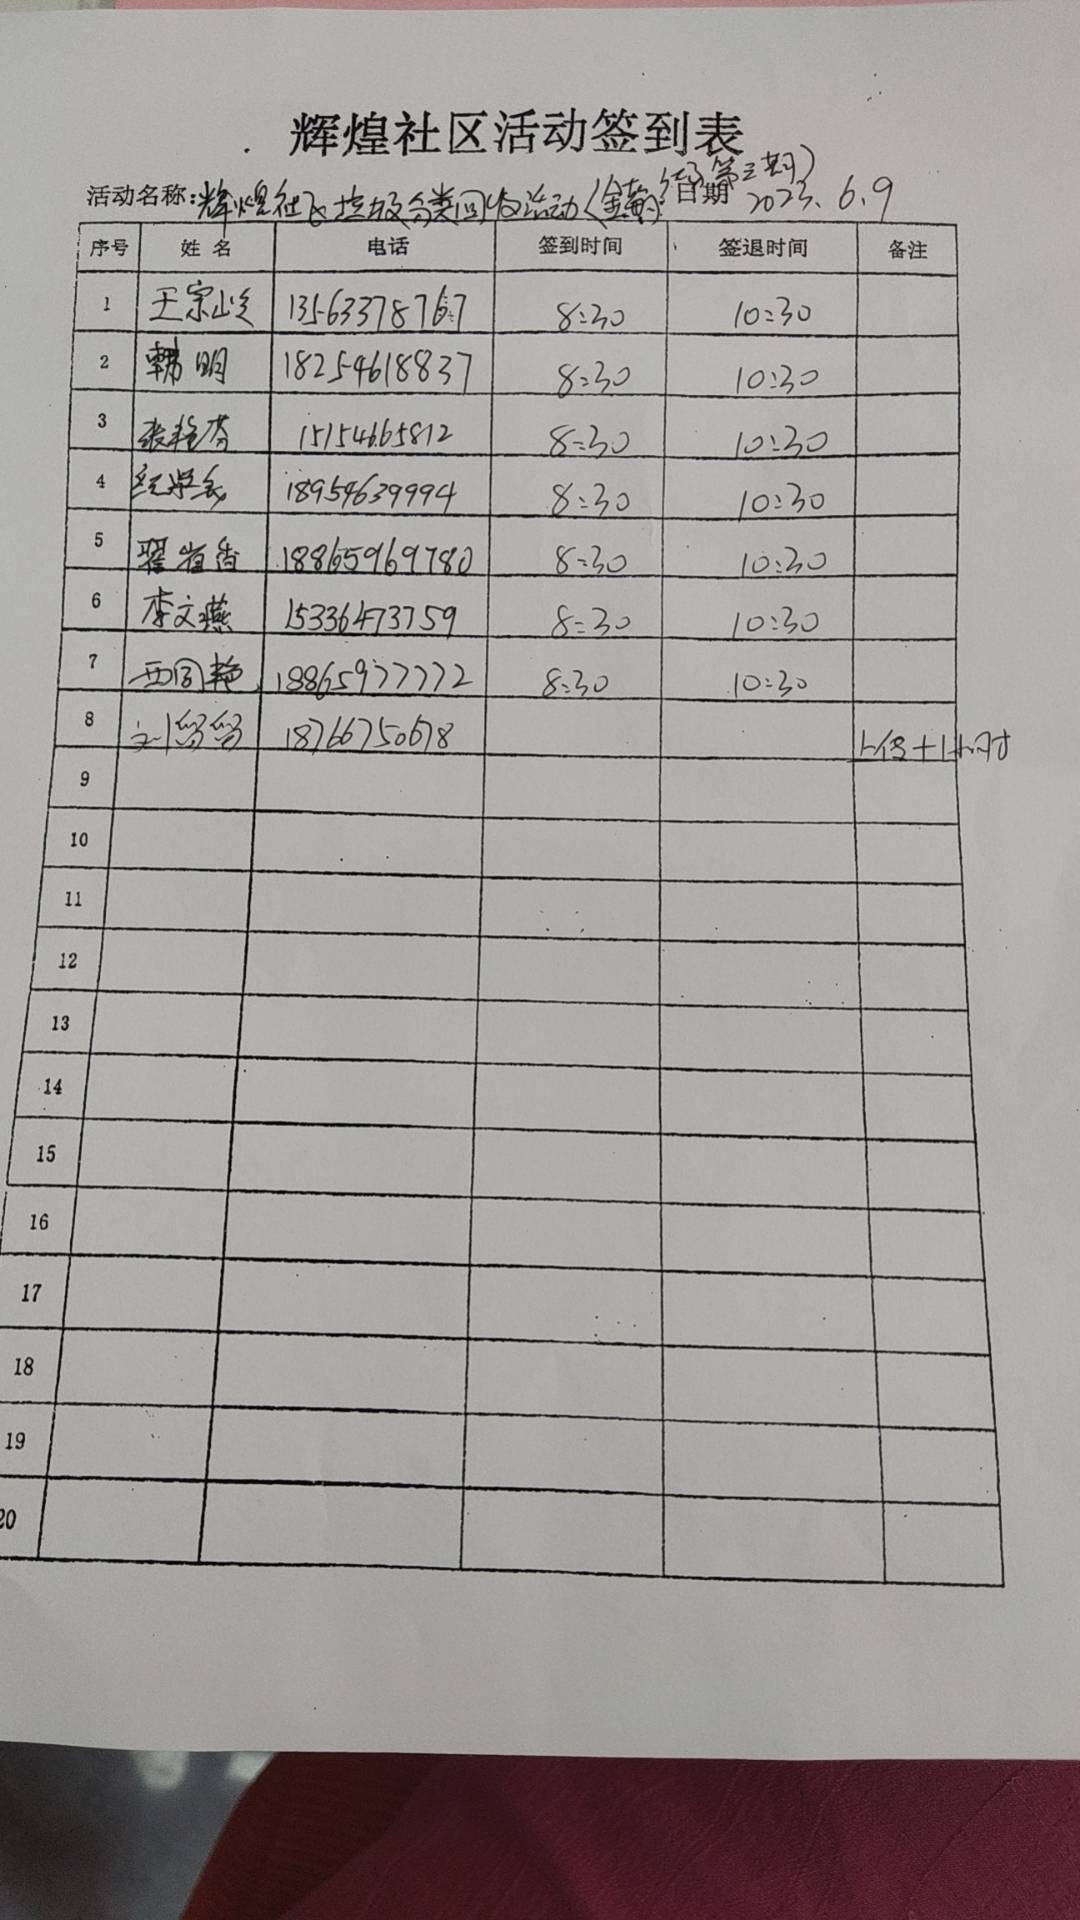 辉煌社区活动签到表
活动名称:辉煌社区垃圾分类回收活动(金黄 第三期) 日期 2023.6.9
序号 姓名 电话 签到时间 签退时间 备注
1 王宗岭 13563378767 8:30 10:30
2 韩明 18254618837 8:30 10:30
3 张艳芬 15154665812 8:30 10:30
4 18954639994 8:30 10:30
5 翟省香 18865969780 8:30 10:30
6 李文燕 15336473759 8:30 10:30
7 西同艳 18865977772 8:30 10:30
8 刘留留 18766750678 上传+1小时
9
10
11
12
13
14
15
16
17
18
19
20